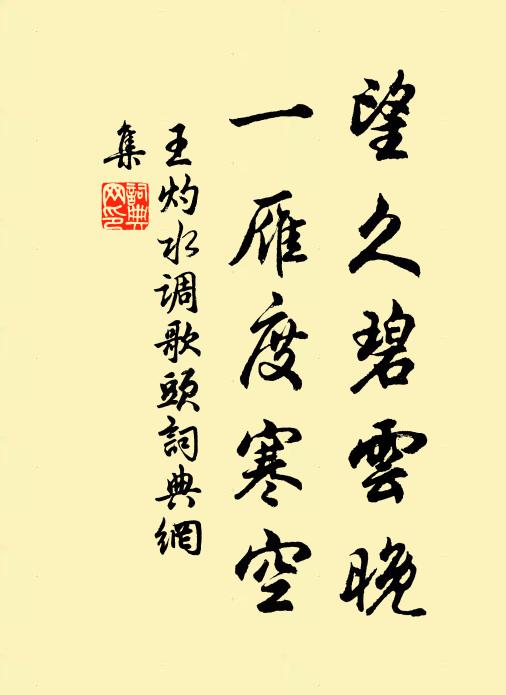 望久碧雲晚
一雁度寒空
王灼水调歌頭詞典網
集
詞典
网印